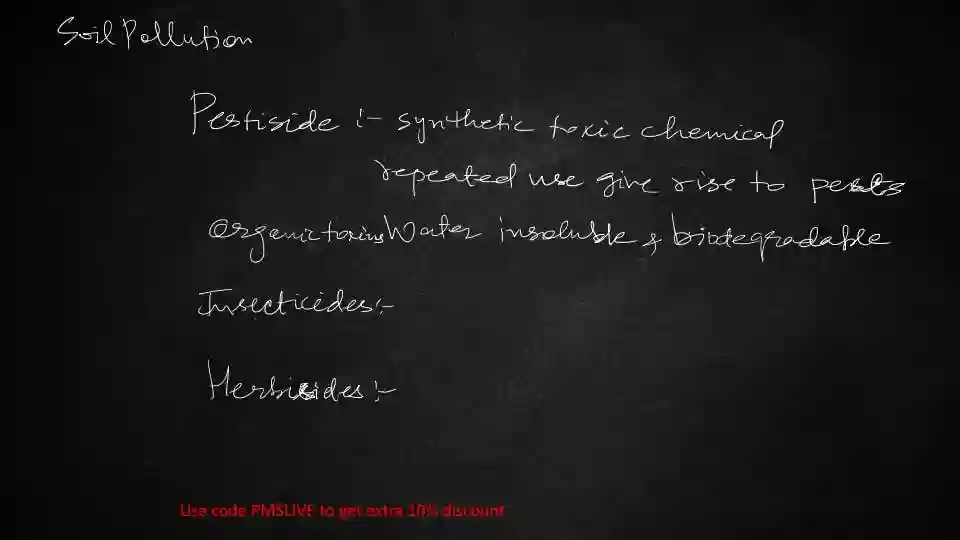 Soil Pollution
Pestiside :- synthetic toxic chemical
repeated use give rise to pests
organic toxins Water insoluble & biodegradable
Insecticides :-
Herbicides :-
Use code PMSLIVE to get extra 10% discount